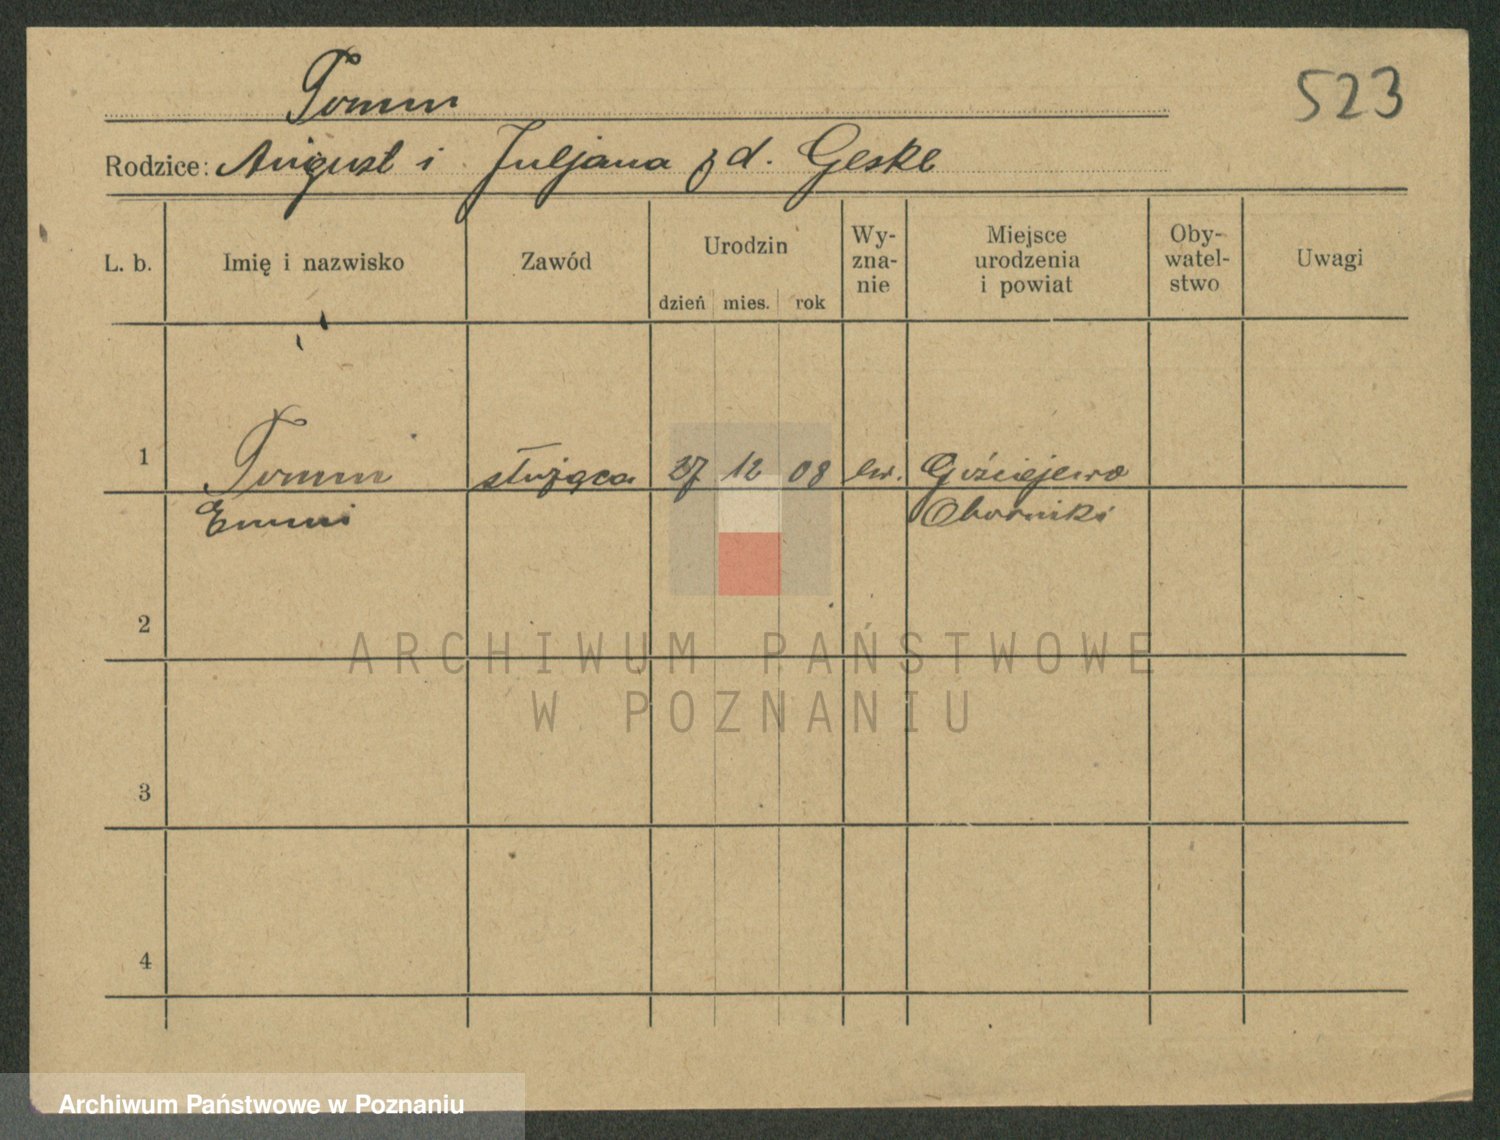 Tomm
523
Rodzice: August i Juljana z d. Geske
L. b. Imię i nazwisko Zawód Urodzin Wy-zna-nie Miejsce urodzenia i powiat Oby-watel-stwo Uwagi
dzień mies. rok
1 Tomm służąca 27 12 08 ew. Gościejewo
Emmi Oborniki
2
3
4
ARCHIWUM PAŃSTWOWE
W POZNANIU
Archiwum Państwowe w Poznaniu